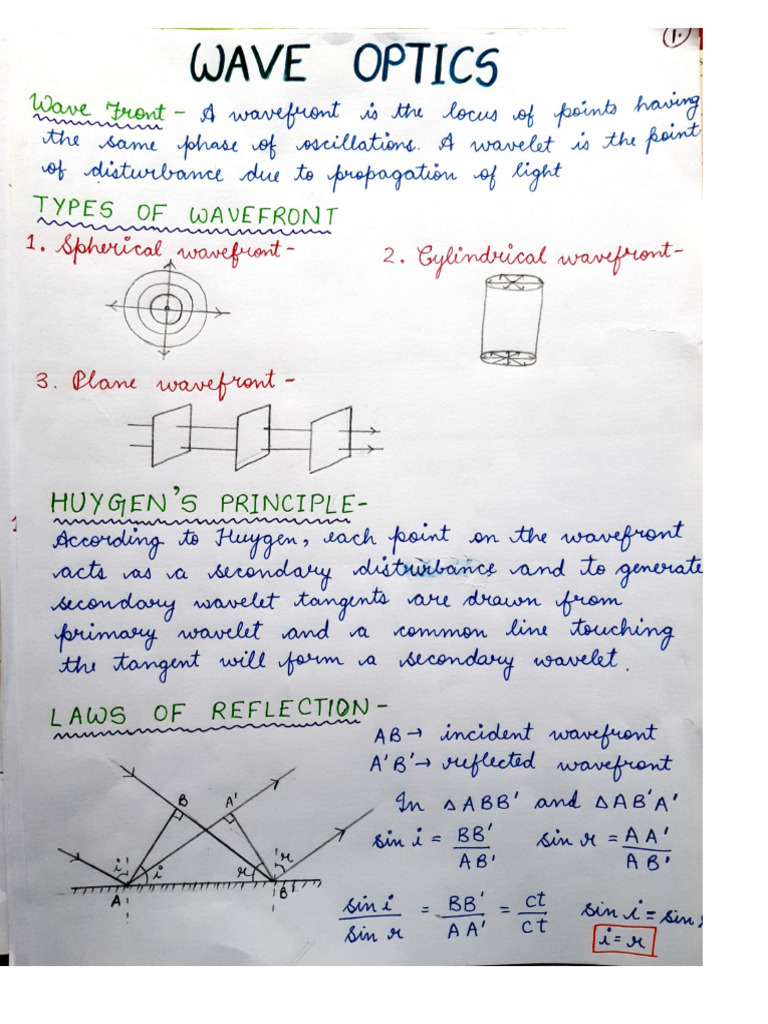 1.
WAVE OPTICS
Wave Front - A wavefront is the locus of points having
the same phase of oscillations. A wavelet is the point
of disturbance due to propagation of light
TYPES OF WAVEFRONT
1. Spherical wavefront -
2. Cylindrical wavefront -
3. Plane wavefront -
HUYGEN'S PRINCIPLE -
According to Huygen, each point on the wavefront
acts as a secondary disturbance and to generate
secondary wavelet tangents are drawn from
primary wavelet and a common line touching
the tangent will form a secondary wavelet.
LAWS OF REFLECTION -
AB → incident wavefront
A'B' → reflected wavefront
In △ABB' and △AB'A'
sin i = BB' / AB' sin r = AA' / AB'
sin i / sin r = BB' / AA' = ct / ct sin i = sin
i = r
B A'
i i r r
A B'